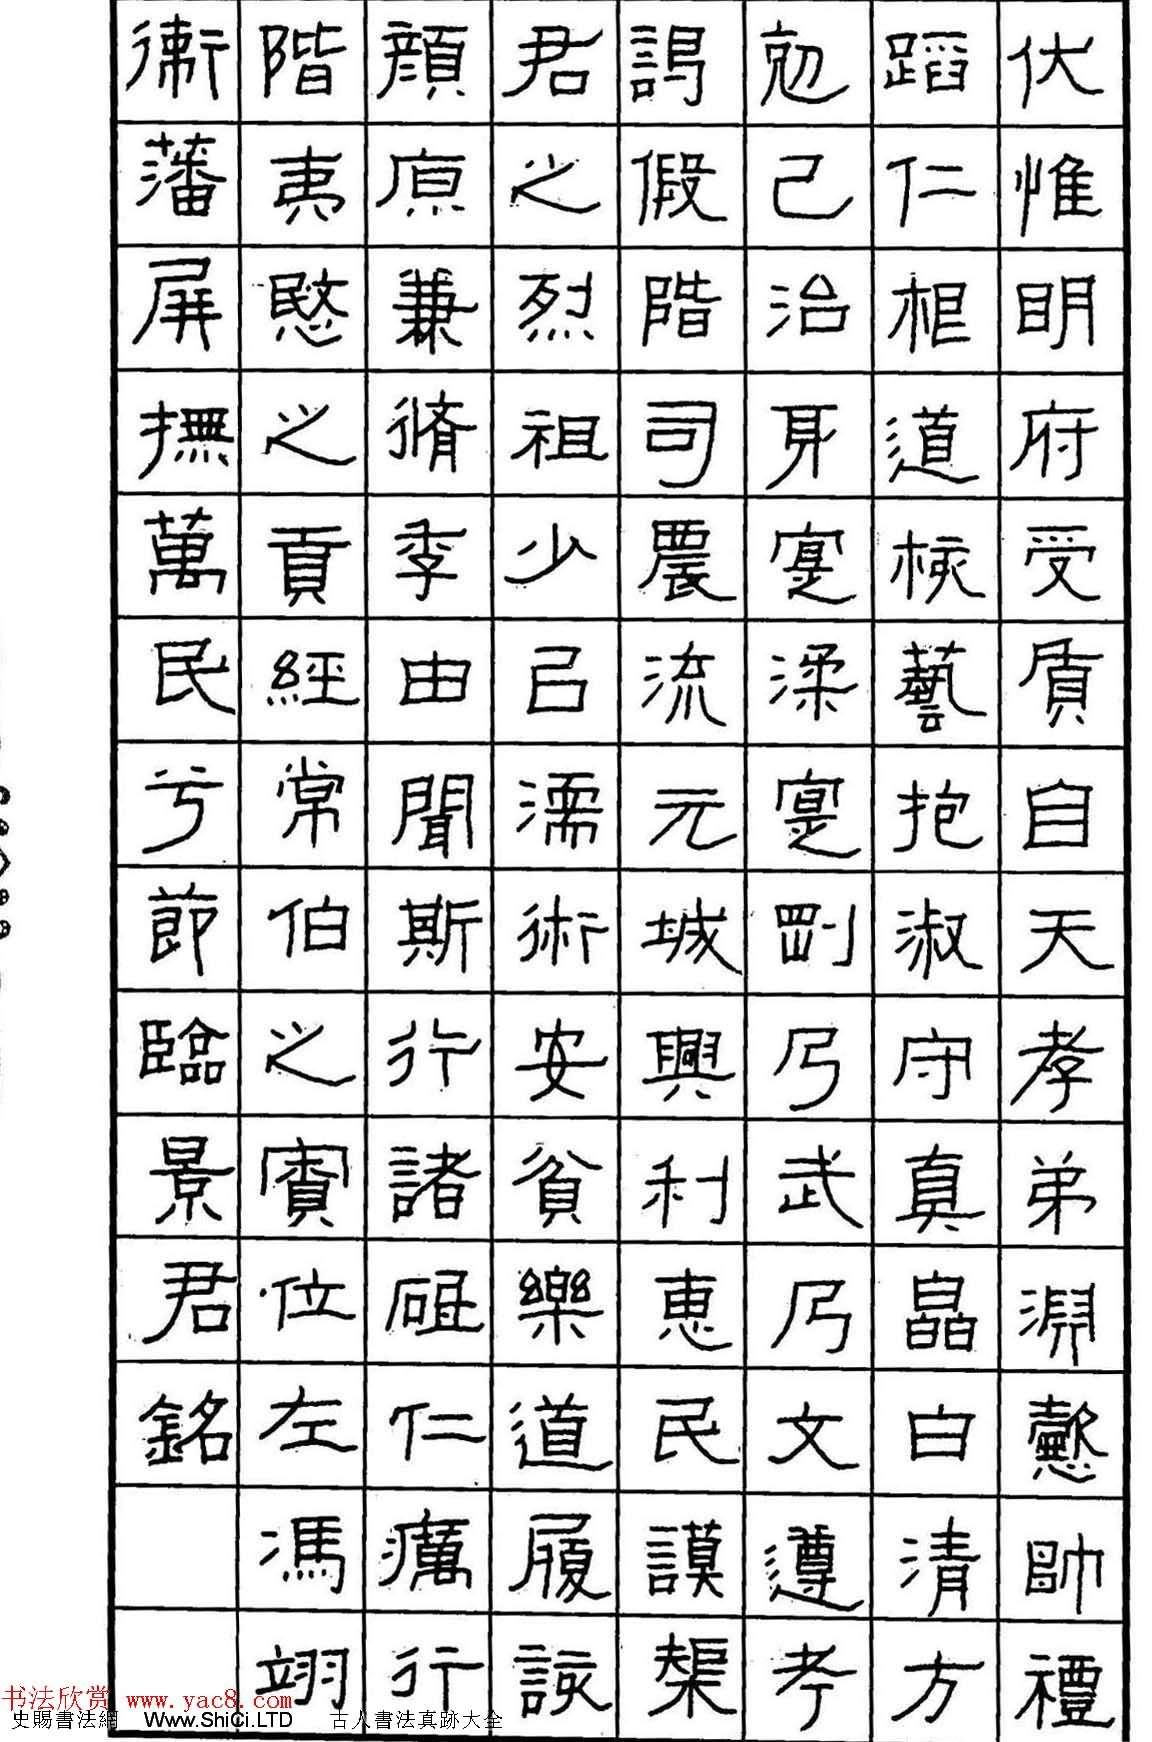 伏惟明府受質自天孝弟淵懿帥禮
蹈仁根道核藝抱淑守真皛白清方
剋己治身寔渘寔剛乃武乃文遵考
謁假階司農流元城興利惠民謨榘
君之烈祖少㠯濡術安貧樂道履該
顏原兼脩季由聞斯行諸砠仁癘行
階夷愍之貢經常伯之賓位左馮翊
衛藩屏撫萬民兮節臨景君銘
书法欣赏 www.yac8.com
史賜書法網 Www.ShiCi.LTD 古人書法真跡大全